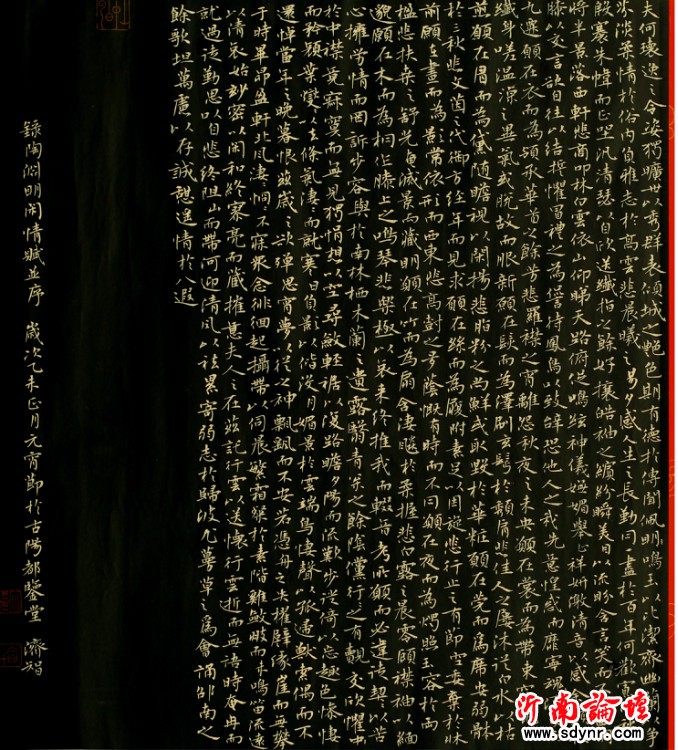 夫何瓌逸之令姿獨曠世以秀群表傾城之艷色期有德於傳聞佩鳴玉以比潔齊幽蘭以爭
芬淡柔情於俗內負雅志於高雲悲晨曦之易夕感人生之長勤同一盡於百年何歡
殷褰朱幃而正坐汎清瑟以自欣送纖指以餘好攘皓袖之繽紛瞬美目以流眄含言笑而
將半景落西軒悲商叩林白雲依山仰睇天路俯促鳴絃神儀嫵媚舉止詳妍激清音以感余
膝以交言欲自往以結誓懼冒禮之為愆待鳳鳥以致辭恐他人之我先意惶惑而靡寧魂
九遷願在衣而為領承華首之餘芳悲羅襟之宵離怨秋夜之未央願在裳而為帶束
纖身嗟溫涼之異氣或脫故而服新願在髮而為澤刷玄鬢於頹肩悲佳人之屢沐從白水以枯
煎願在眉而為黛隨瞻視以閑揚悲脂粉之尚鮮或取毀於華妝願在莞而為席安弱體
於三秋悲文茵之代御方經年而見求願在絲而為履附素足以周旋悲行止之有節空委棄於牀
前願在晝而為影常依形而西東悲高樹之多蔭慨有時而不同願在夜而為燭照玉容於兩
楹悲扶桑之舒光奄滅景而藏明願在竹而為扇含淒飆於柔握悲白露之晨零顧襟袖以緬
邈願在木而為桐作膝上之鳴琴悲樂極以哀來終推我而輟音考所願而必違徒契契以苦
心擁勞情而罔訴步容與於南林栖木蘭之遺露翳青松之餘陰儻行行之有覿交欣懼
於中襟竟寂寞而無見獨悁想以空尋斂輕裾以復路瞻夕陽而流歎步徙倚以忘趣色慘悽
而矜顏葉燮燮以去條氣淒淒而就寒日負影以偕沒月媚景於雲端鳥悽聲以孤歸獸索偶而不
還悼當年之晚暮恨茲歲之欲殫思宵夢以從之神飄颻而不安若憑舟之失櫂譬緣崖而無攀
于時畢昴盈軒北風淒淒恫恫不寐衆念徘徊起攝帶以伺晨繁霜粲於素階雞斂翅而未鳴笛流遠
以清哀始妙密以閑和終寥亮而藏摧意夫人之在茲託行雲以送懷行雲逝而無語時奄冉而
就過徒勤思以自悲終阻山而帶河迎清風以祛累寄弱志於歸波尤蔓草之為會誦邵南之
餘歌坦萬慮以存誠憩遙情於八遐
錄陶淵明閑情賦並序 歲次乙未正月元宵節於古陽都鑒堂 濟智
沂南論壇
www.sdynr.com